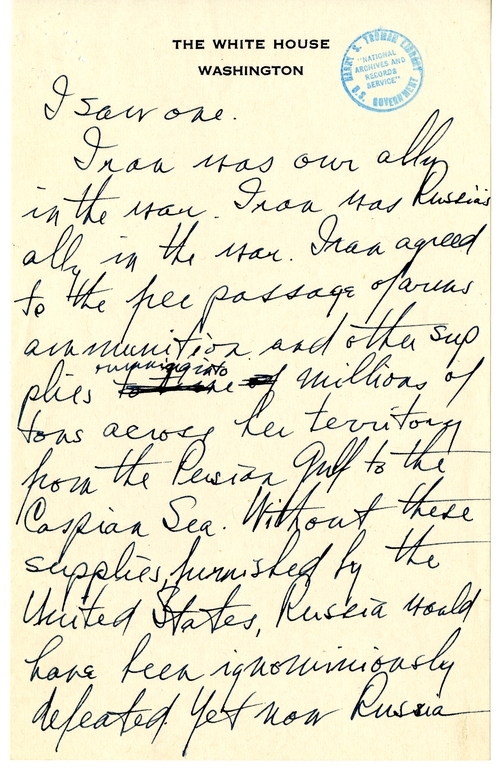 THE WHITE HOUSE
WASHINGTON
HARRY S. TRUMAN LIBRARY
"NATIONAL
ARCHIVES AND
RECORDS
SERVICE"
U.S. GOVERNMENT
I saw one.
Iran was our ally
in the war. Iran was Russia's
ally in the war. Iran agreed
to the free passage of arms
ammunition and other sup
plies running into millions of
tons across her territory
from the Persian Gulf to the
Caspian Sea. Without these
supplies, furnished by the
United States, Russia would
have been ignominiously
defeated Yet now Russia